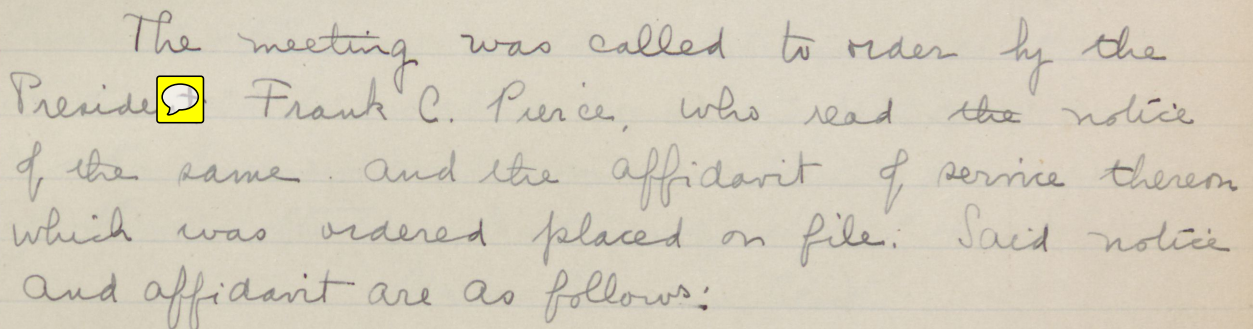 The meeting was called to order by the
President Frank C. Pierce, who read the notice
of the same. and the affidavit of service thereon
which was ordered placed on file. Said notice
and affidavit are as follows: